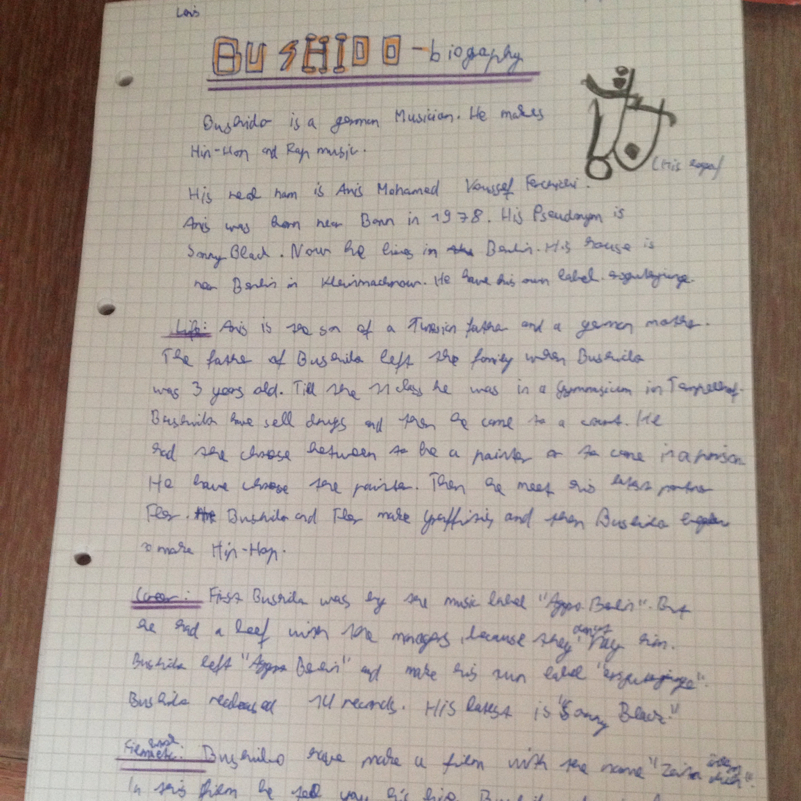 Lois
BUSHIDO - biography
Bushido is a german Musician. He makes
Hin-Hon and Rap music.
(His logo)
His real nam is Anis Mohamed Youssef Ferchichi.
Anis was born near Bonn in 1978. His Pseudonym is
Sonny Black. Now he lives in Berlin. His house is
near Berlin in Kleinmachnow. He have his own label
Life: Anis is the son of a Tunesian father and a german mother.
The father of Bushido left the family when Bushido
was 3 years old. Till the 11 class he was in a Gymnasium in Tempelhof.
Bushido have sell drugs and then he come to a court. He
had the choose between to be a painter or to come in a prison
He have choose the painter. Then he meet his partner
Fler. Bushido and Fler make graffitis and then Bushido
to make Hip-Hop.
Career: First Bushido was by the music label "Aggro Berlin". But
he had a beef with the manager, because they don't pay him.
Bushido left "Aggro Berlin" and make his own label "ersguterjunge".
Bushido released 14 records. His latest is "Sonny Black"
and Bushido have make a film with the name "Zeiten ändern dich"
In this film he tell you his Bushido